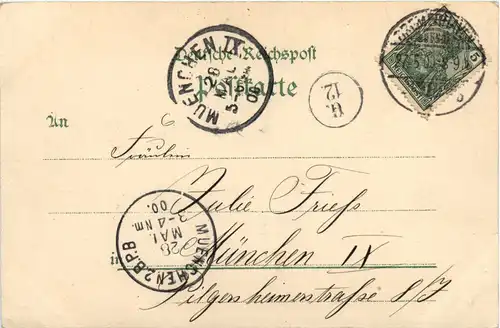 MUENCHEN IX
28
MAI.
3-4 Nm
00
Deutsche Reichspost
Postkarte
U.
12.
An
Fräulein
Julie Friess
in München IX
Pilgersheimerstraße
MUENCHEN 2.B.P.B
28
MAI.
3-4 Nm.
00.